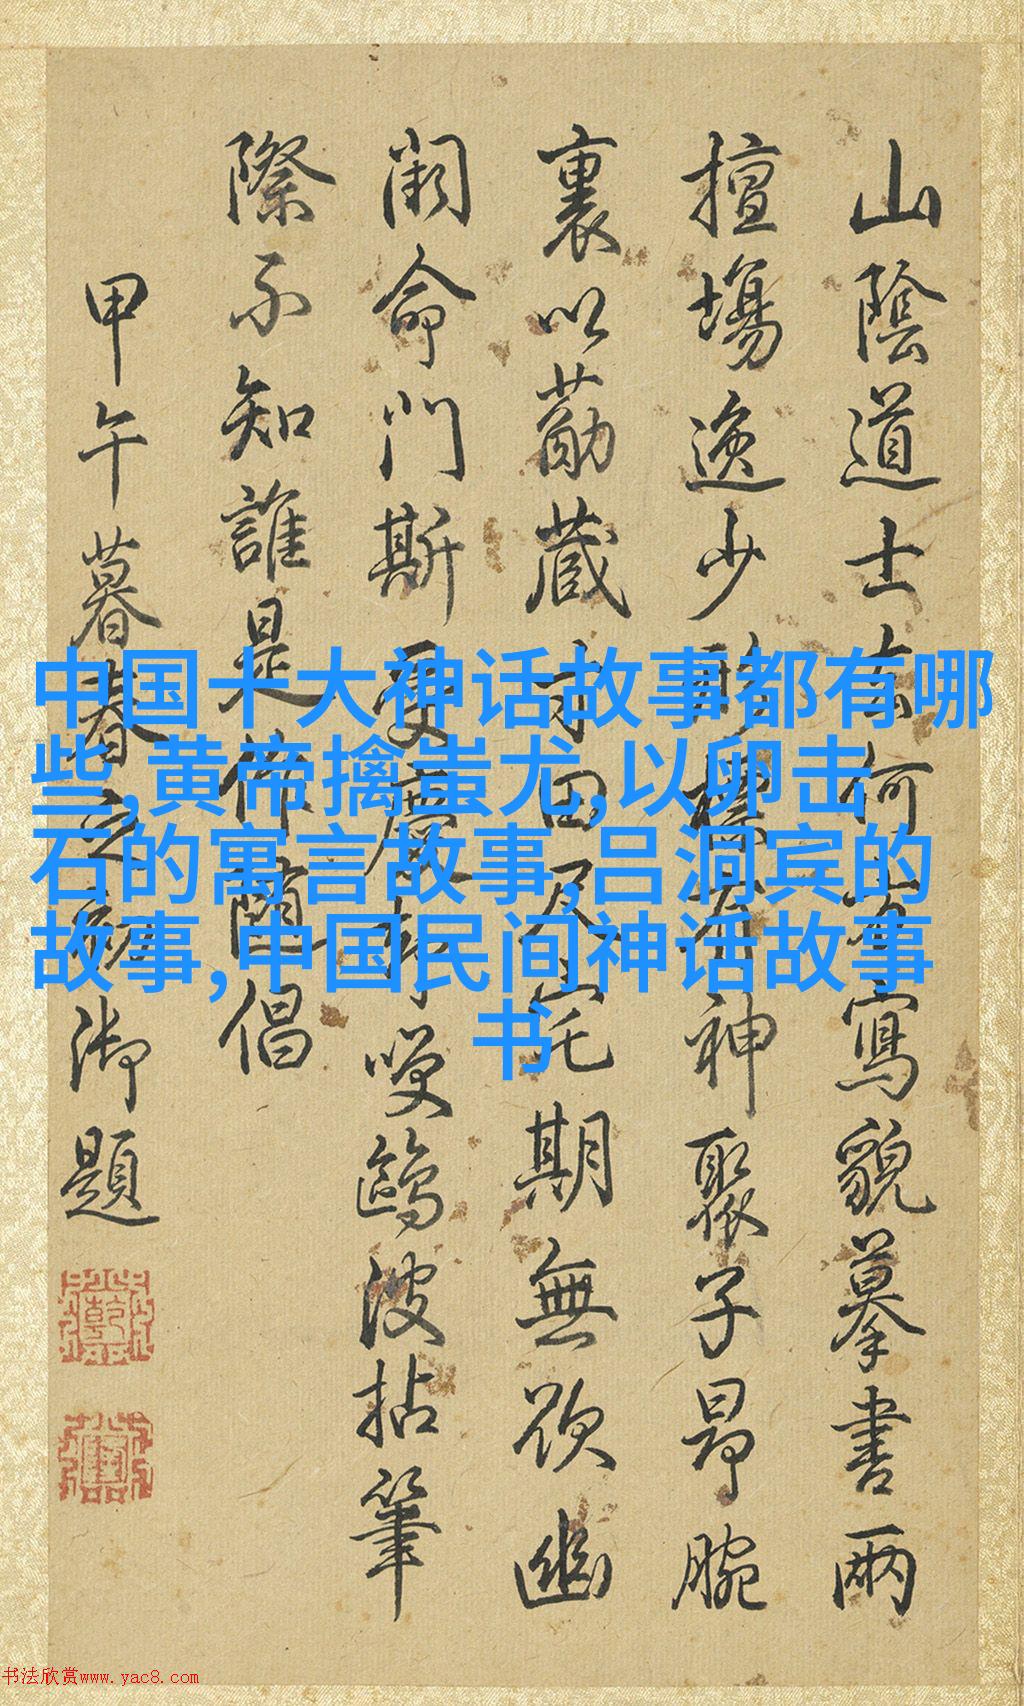 中国十大神话故事都有哪
些,黄帝擒蚩尤,以卵击
石的寓言故事,吕洞宾的
故事,中国民间神话故事
书
山陰道士何寫貌摹書兩
擅場逸少神聚子昂腕
裏以藏田期無欲幽
命門斯受鷗波拈筆
際不知誰是隨倡
甲午暮春之初御題
书法欣赏www.yac8.com